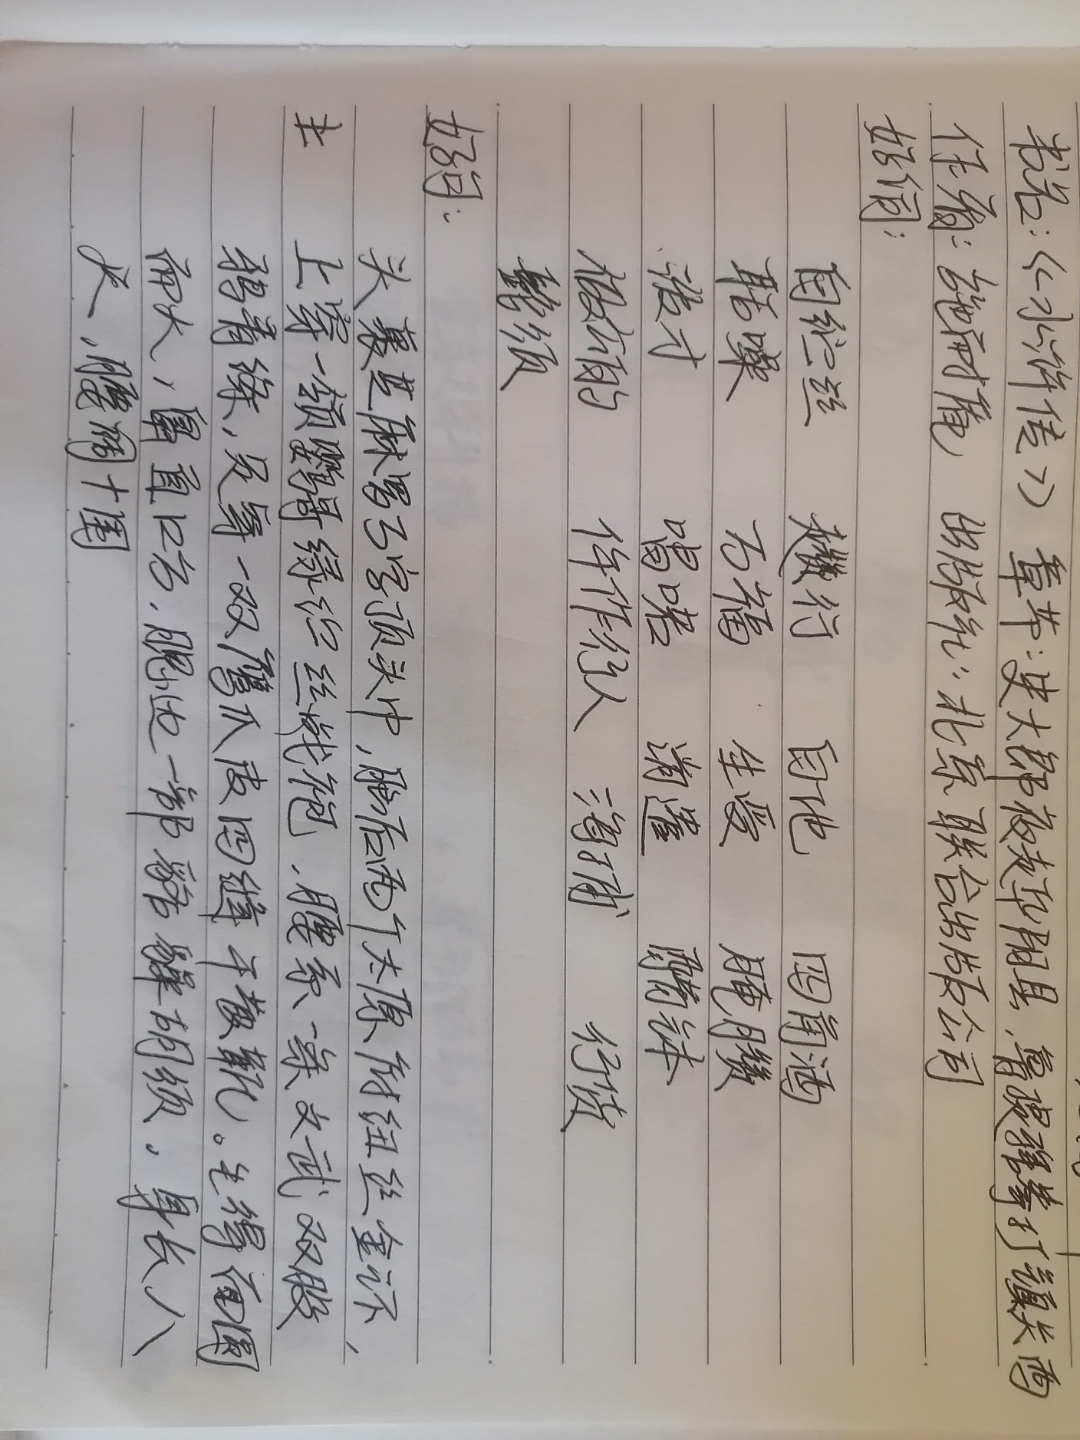 书名:《水浒传》 章节:史大郎夜走华阴县,鲁提辖拳打镇关西
作者:施耐庵 出版社:北京联合出版公司
好词:
自纻丝 趱行 白地 四角酒
聒噪 万福 生受 腌臜
没才 唱喏 逍遥 酵计
做作人 消捕 行货
髭须
好句:
头裹芝麻罗万字顶头巾,脑后两个太原府纽丝金环,
上穿一领鹦哥绿纻丝战袍,腰系一条文武双股
鸦青绦,足穿一双鹰爪皮四缝干黄靴。生得面圆
耳大,鼻直口方,腮边一部貉䝙胡须,身长八
尺,腰阔十围